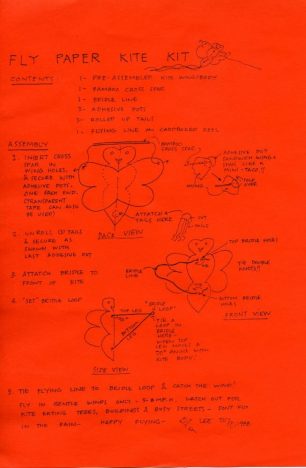 FLY PAPER KITE KIT
CONTENTS:
1- PRE-ASSEMBLED KITE W/BODY
1- BAMBOO CROSS SPAR
1- BRIDLE LINE
3- ADHESIVE DOTS
3- ROLLED UP TAILS
1- FLYING LINE ON CARDBOARD REEL
ASSEMBLY
1. INSERT CROSS
SPAR IN
WING HOLES,
& SECURE WITH
ADHESIVE DOTS.
ONE EACH END.
(TRANSPARENT
TAPE CAN ALSO
BE USED)
BAMBOO
CROSS SPAR
ADHESIVE DOT
SANDWICH WING &
SPAR LIKE A
MINI-TACO!!
WING
FOLD
OVER
ATTATCH
TAILS HERE
TAILS
BACK VIEW
2. UNROLL (3) TAILS
& SECURE AS
SHOWN WITH
LAST ADHESIVE DOT
3. ATTATCH BRIDLE TO
FRONT OF KITE
4. "SET" BRIDLE LOOP
TOP BRIDLE HOLE
TIE DOUBLE
KNOTS!!
BRIDLE
LINE
BOTTOM BRIDLE
HOLE
FRONT VIEW
TOP LEG
BOTTOM
LEG
"BRIDLE
LOOP"
TIE A
LOOP IN
BRIDLE
HERE—
WHEN TOP
LEG MAKES A
ANGLE WITH
KITE BODY!
SIDE VIEW
5. TIE FLYING LINE TO BRIDLE LOOP & CATCH THE WIND!
FLY IN GENTLE WINDS ONLY - 5-8 M.P.H. WATCH OUT FOR
KITE EATING TREES, BUILDINGS & BUSY STREETS - DON'T FLY
IN THE RAIN - HAPPY FLYING -
LEE
1988